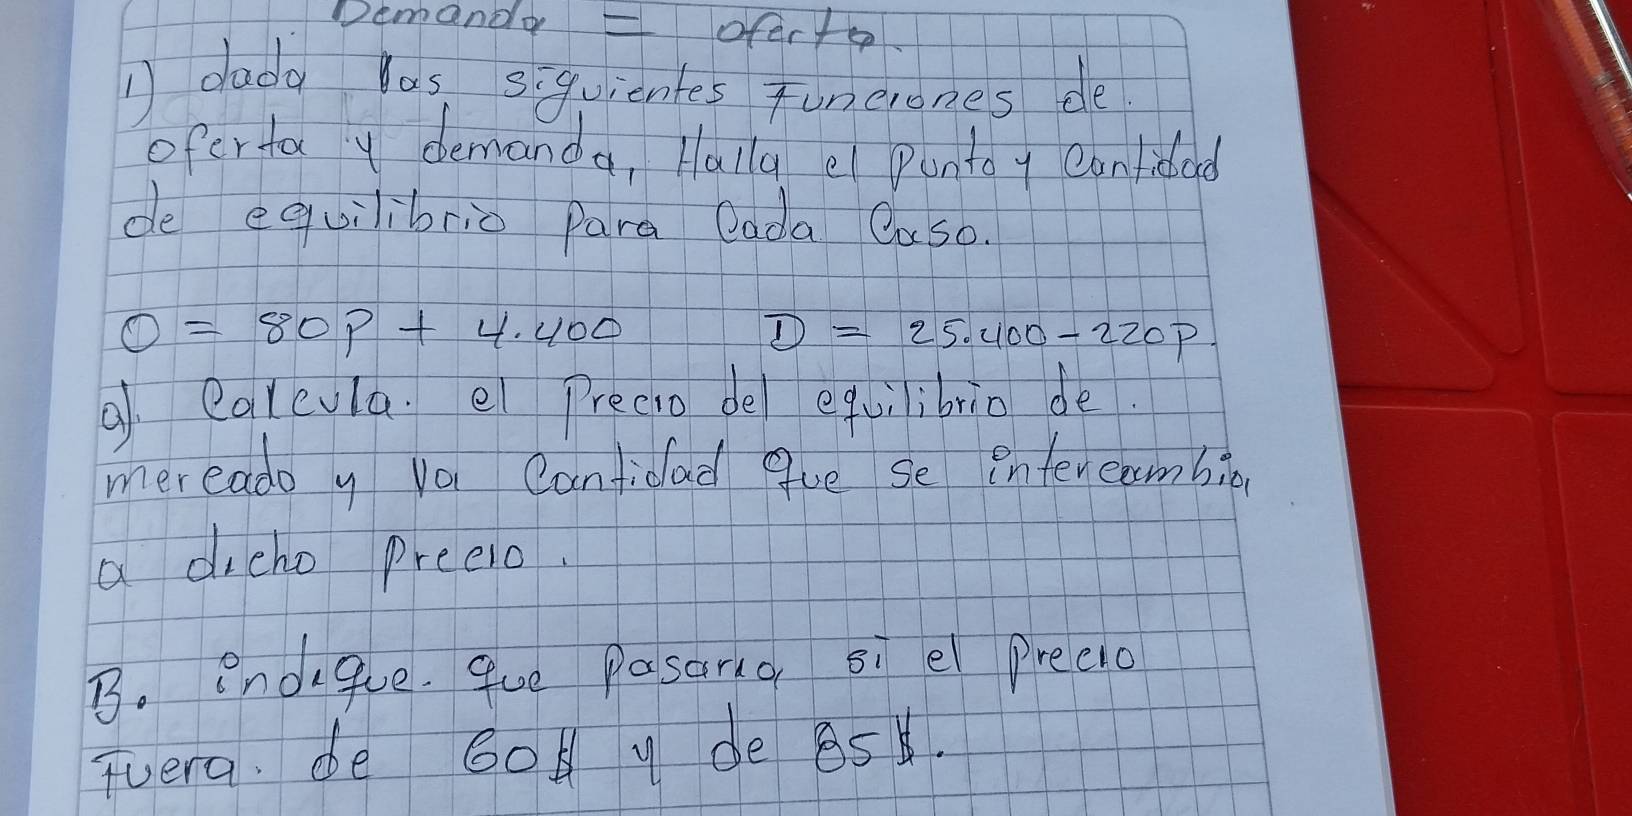 Demanda = oferta.
1) dada las siguientes Funciones de.
oferta y demanda, Halla el Punto y Cantidad
de equilibrio Para Cada Caso.
O = 80P + 4.400 D = 25.400 - 220P.
a). Calcula. el Precio del equilibrio de.
mercado y la Cantidad que se intercambia
a dicho Precio.
B. indique. que Pasaria si el Precio
Fuera. de 60$ y de 85$.